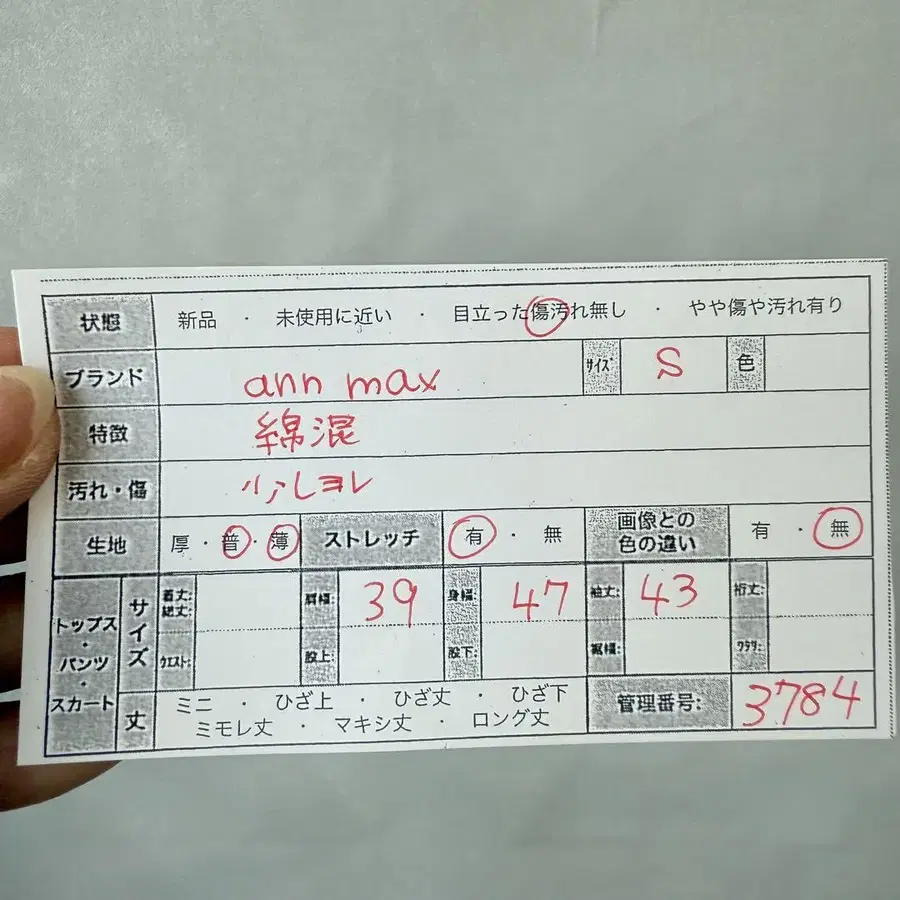 状態 新品 ・ 未使用に近い ・ 目立った傷汚れ無し ・ やや傷や汚れ有り
ブランド ann max ｻｲｽﾞ S 色
特徴 綿混
汚れ・傷 少しヨレ
生地 厚・普・薄 ストレッチ 有 ・ 無 画像との色の違い 有 ・ 無
トップス・パンツ・スカート サイズ 着丈: 総丈: 肩幅: 39 身幅: 47 袖丈: 43 裄丈:
ｳｴｽﾄ: 股上: 股下: 裾幅: ﾜﾀﾘ:
丈 ミニ ・ ひざ上 ・ ひざ丈 ・ ひざ下
ミモレ丈 ・ マキシ丈 ・ ロング丈
管理番号: 3784